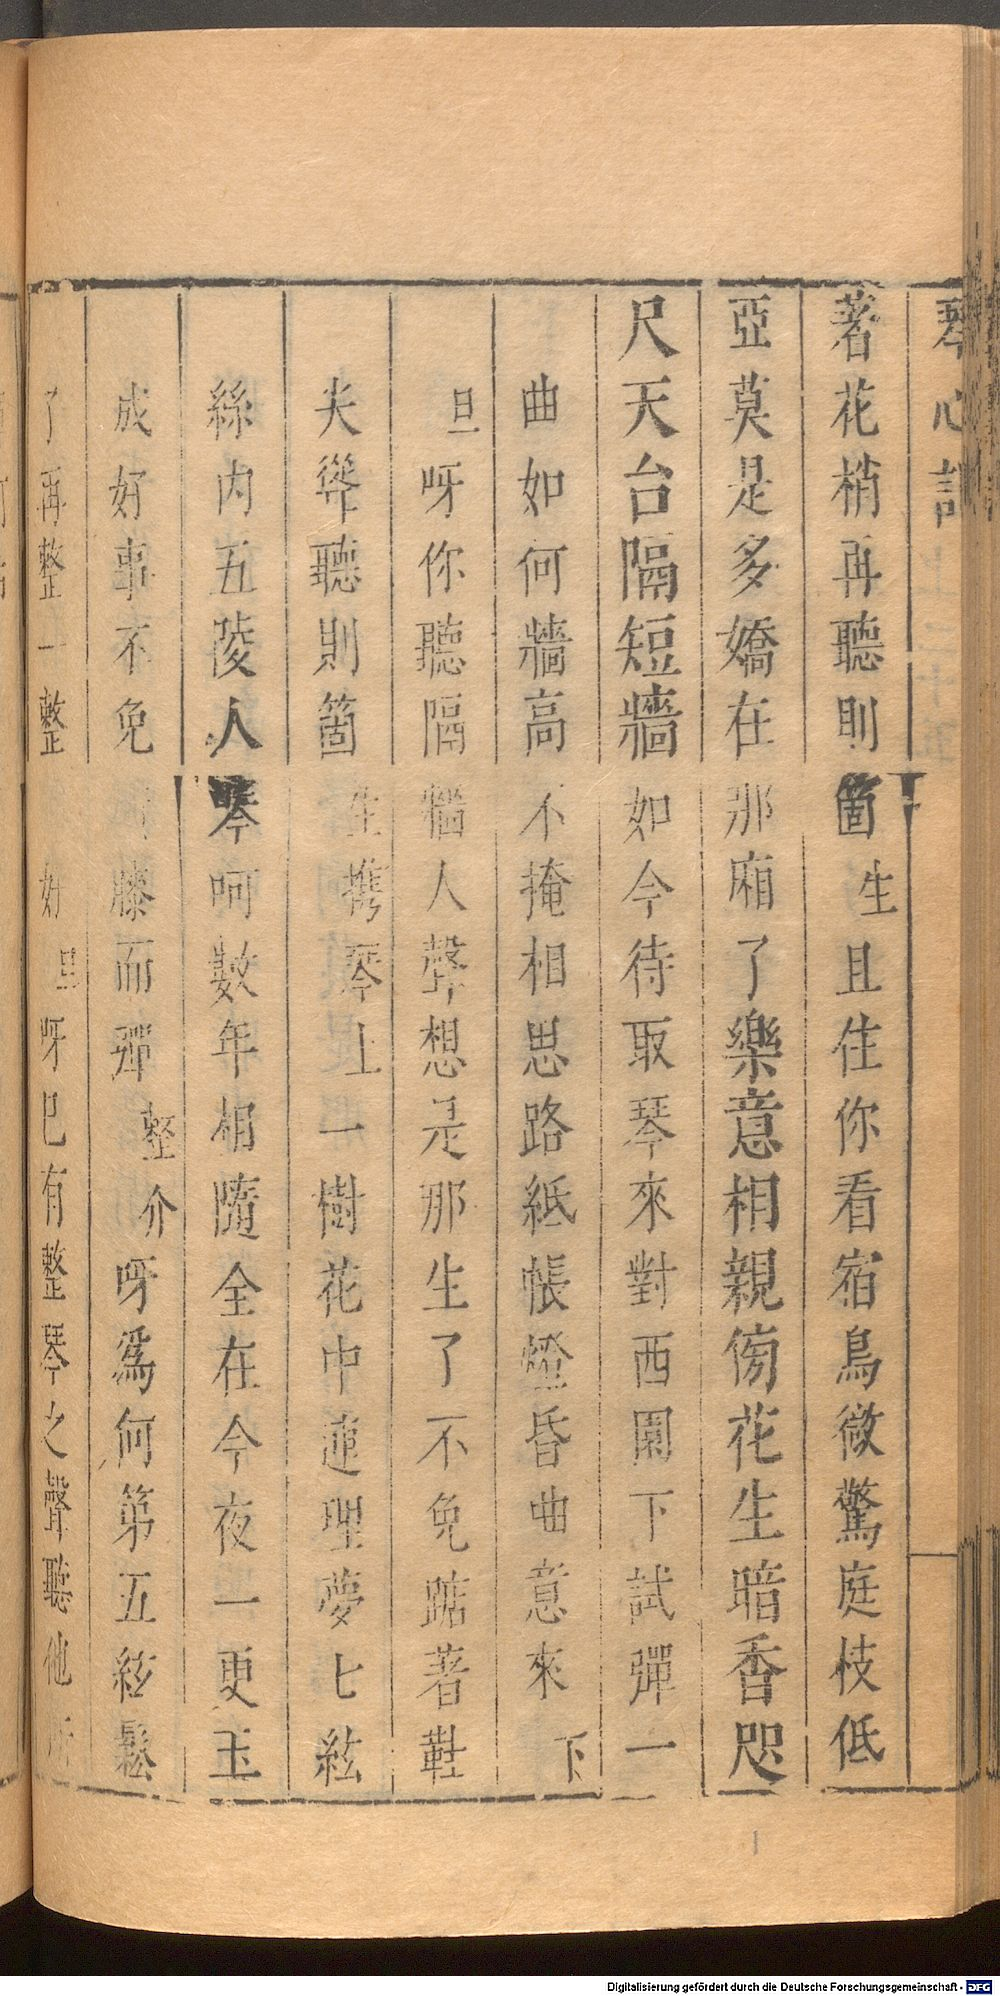 琴心記
著花梢再聽則箇生且住你看宿鳥微驚庭枝低
亞莫是多嬌在那廂了樂意相親傍花生暗香咫
尺天台隔短牆如今待取琴來對西園下試彈一
曲如何牆高不掩相思路紙帳燈昏曲意來下
旦呀你聽隔牆人聲想是那生了不免踮著鞋
尖聳聽則箇生攜琴上一樹花中連理夢七絃
絲內五陵人琴呵數年相隨全在今夜一更玉
成好事不免膝而彈整介呀爲何第五絃鬆
了再整一整好旦呀已有整琴之聲聽他
Digitalisierung gefördert durch die Deutsche Forschungsgemeinschaft - DFG